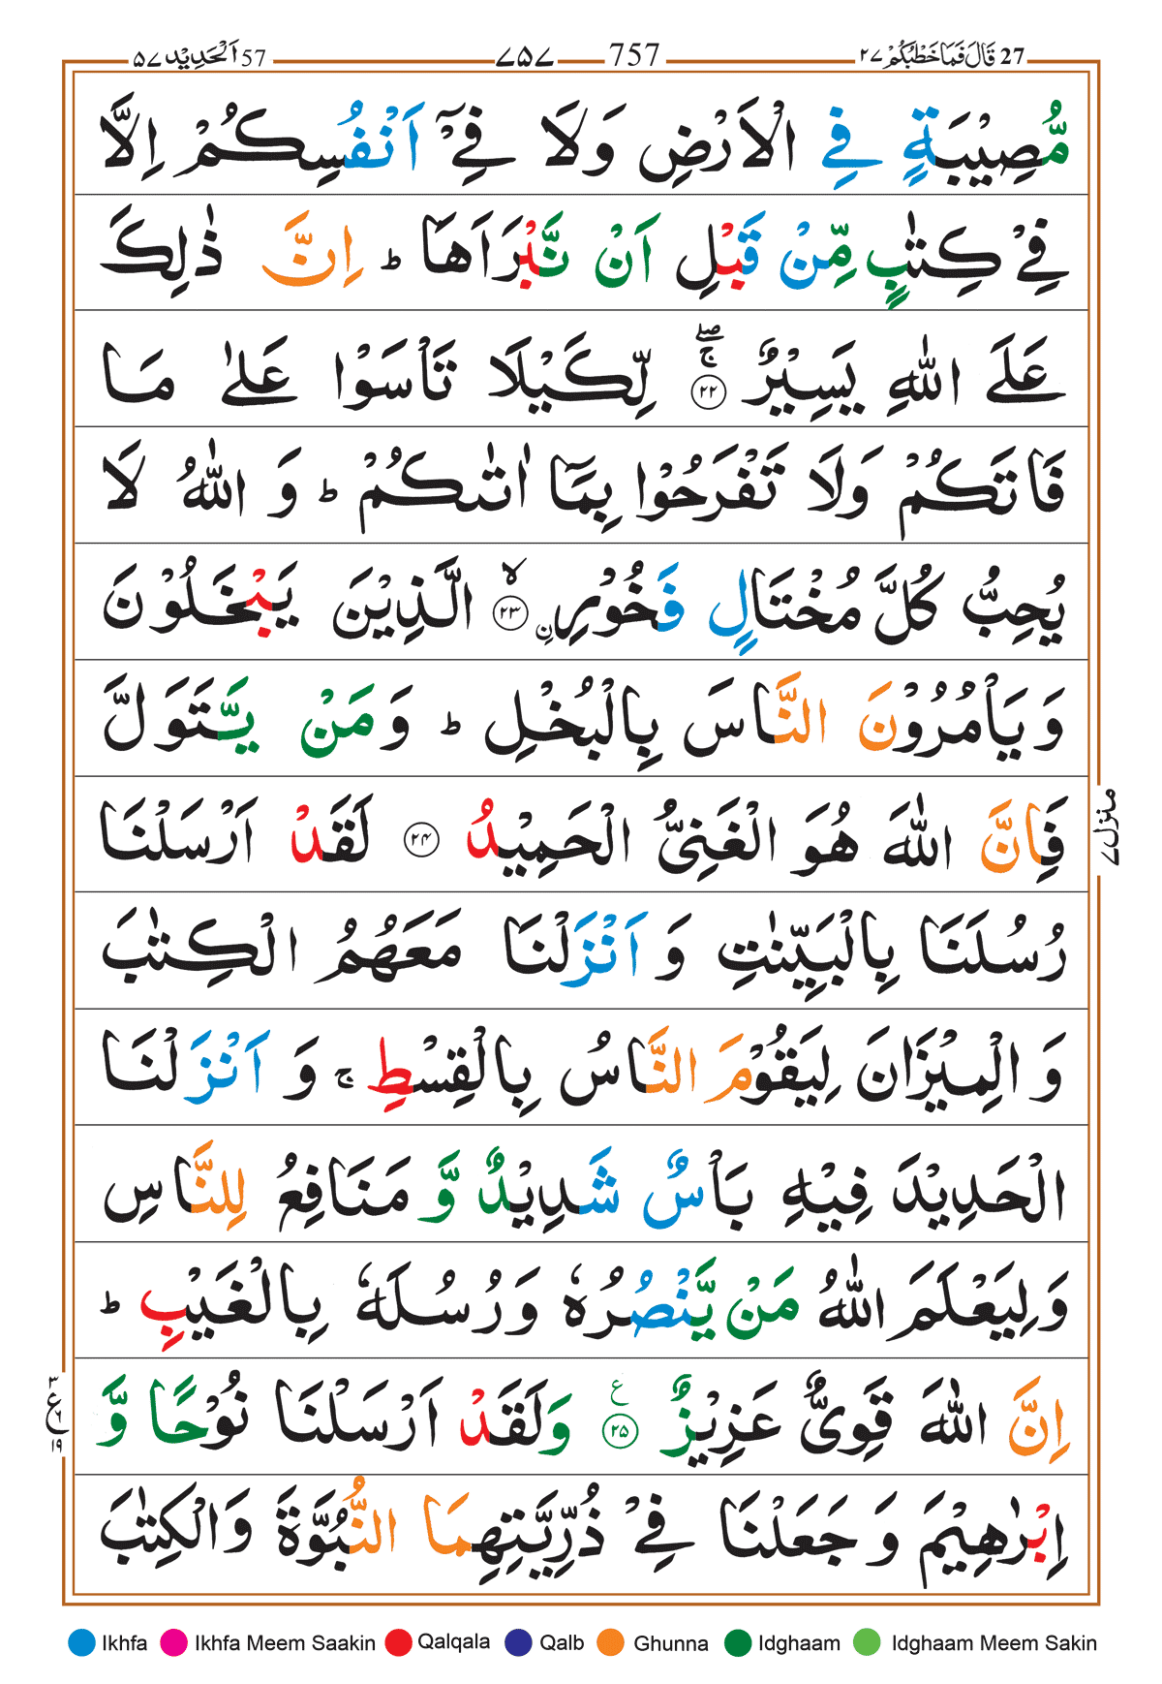 27 قَالَ فَمَا خَطْبُكُمْ ٢٧ 757 ٧٥٧ 57 اَلْحَدِيْد ٥٧
مُّصِيْبَةٍ فِي الْاَرْضِ وَلَا فِيْٓ اَنْفُسِكُمْ اِلَّا
فِيْ كِتٰبٍ مِّنْ قَبْلِ اَنْ نَّبْرَاَهَا ؕ اِنَّ ذٰلِكَ
عَلَى اللّٰهِ يَسِيْرٌ ۚۖ ﴿٢٢﴾ لِّكَيْلَا تَاْسَوْا عَلٰى مَا
فَاتَكُمْ وَلَا تَفْرَحُوْا بِمَآ اٰتٰىكُمْ ؕ وَ اللّٰهُ لَا
يُحِبُّ كُلَّ مُخْتَالٍ فَخُوْرِ ۙ ﴿٢٣﴾ نِ الَّذِيْنَ يَبْخَلُوْنَ
وَ يَاْمُرُوْنَ النَّاسَ بِالْبُخْلِ ؕ وَمَنْ يَّتَوَلَّ
فَاِنَّ اللّٰهَ هُوَ الْغَنِيُّ الْحَمِيْدُ ﴿٢٤﴾ لَقَدْ اَرْسَلْنَا
رُسُلَنَا بِالْبَيِّنٰتِ وَ اَنْزَلْنَا مَعَهُمُ الْكِتٰبَ
وَ الْمِيْزَانَ لِيَقُوْمَ النَّاسُ بِالْقِسْطِ ۚ وَ اَنْزَلْنَا
الْحَدِيْدَ فِيْهِ بَاْسٌ شَدِيْدٌ وَّ مَنَافِعُ لِلنَّاسِ
وَلِيَعْلَمَ اللّٰهُ مَنْ يَّنْصُرُهٗ وَرُسُلَهٗ بِالْغَيْبِ ؕ
اِنَّ اللّٰهَ قَوِيٌّ عَزِيْزٌ ﴿٢٥﴾ ع وَلَقَدْ اَرْسَلْنَا نُوْحًا وَّ
اِبْرٰهِيْمَ وَ جَعَلْنَا فِيْ ذُرِّيَّتِهِمَا النُّبُوَّةَ وَالْكِتٰبَ
منزل ٧
٣ ع ١٩
Ikhfa Ikhfa Meem Saakin Qalqala Qalb Ghunna Idghaam Idghaam Meem Sakin